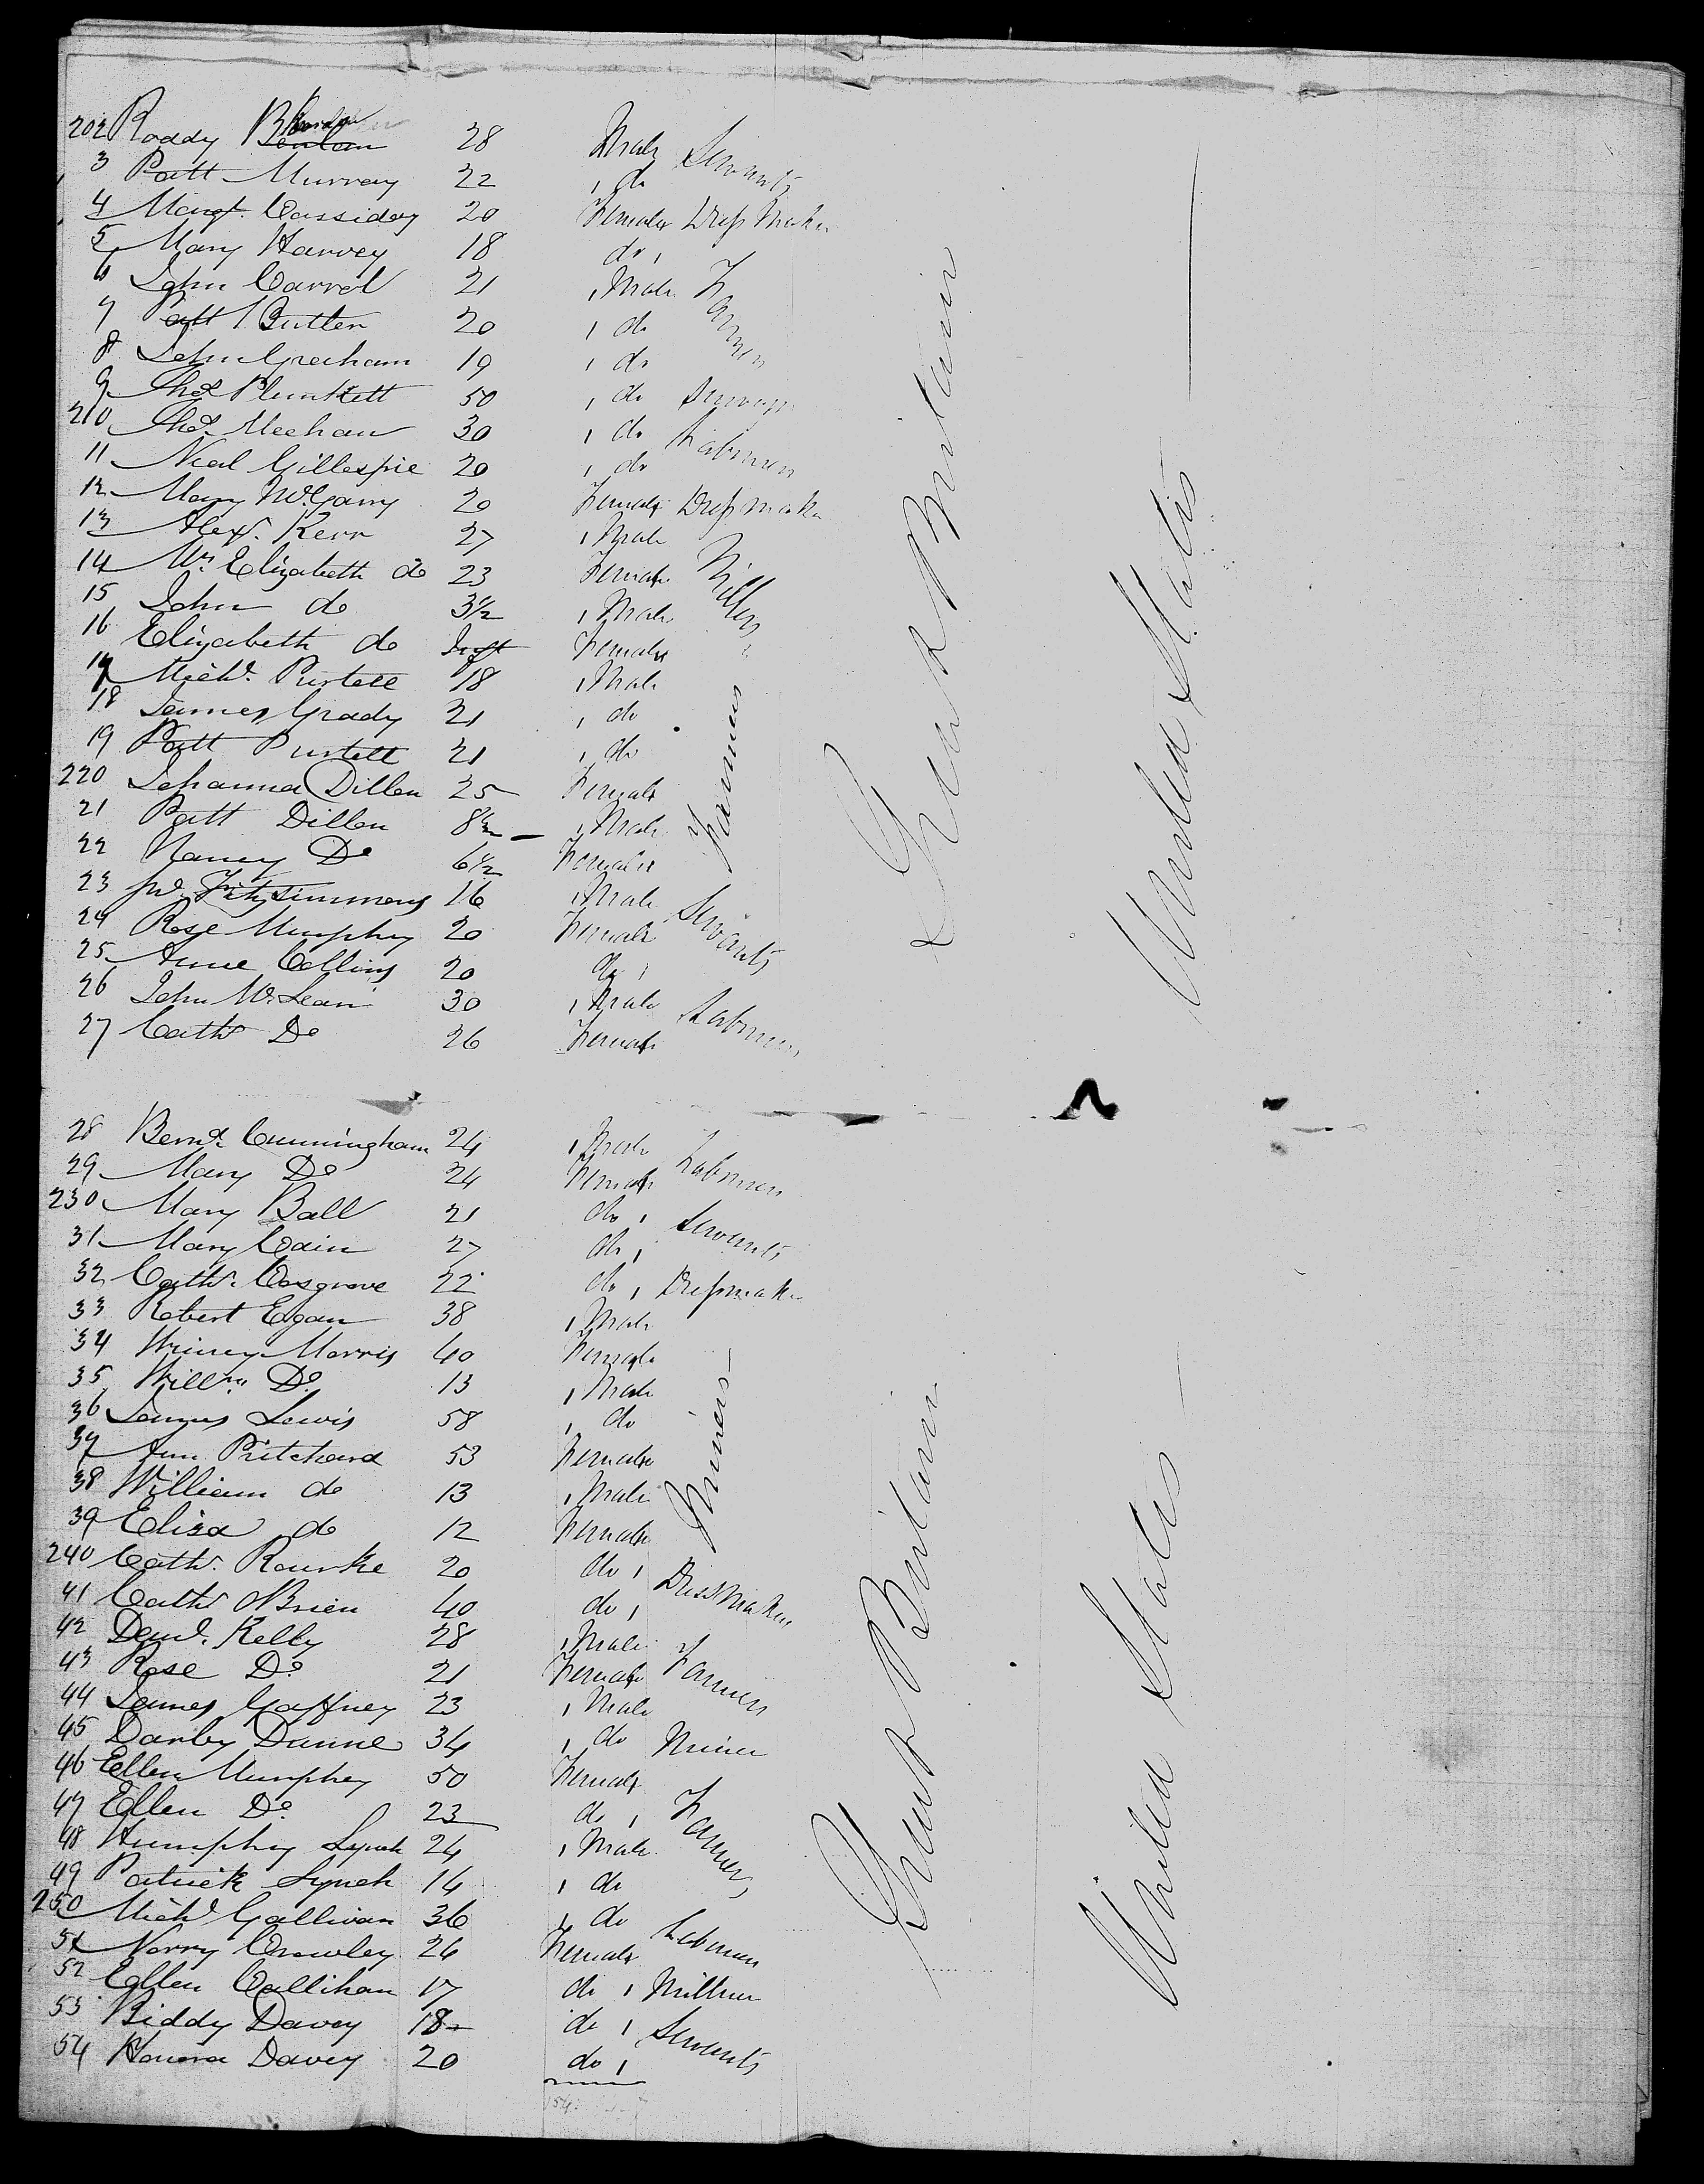 202 Roddy 28 Male Servants
3 Patt Murray 22 do
4 Margt. Cassidy 20 Female Dress Maker
5 Mary Harvey 18 do
6 John Carrol 21 Male Farmers
7 Patt Butler 20 do
8 John Graham 19 do
9 Thos Plunkett 50 do
210 Thos. Meehan 30 do Labourers
11 Neal Gillespie 20 do
12 Mary McGarry 20 Female Dressmaker
13 Alexr. Kerr 27 Male
14 Elizabeth do 23 Female
15 John do 3½ Male
16 Elizabeth do Inft Female
17 Michl. Purtell 18 Male Farmers
18 James Grady 21 do
19 Patt Purtell 21 do
220 Johanna Dillen 25 Female
21 Patt Dillen 8½ Male
22 Nancy Do 6½ Female
23 Fitzsimmons 16 Male Servants
24 Rose Murphy 20 Female
25 Anne Collins 20 do
26 John McLean 30 Male Labourers
27 Cath Do 26 Female
Great Britain
United States
28 Bernd. Cunningham 24 Male Labourers
29 Mary Do 24 Female
230 Mary Ball 21 do Servants
31 Mary Cain 27 do
32 Cath. Cosgrove 22 do Dressmaker
33 Robert Egan 38 Male Miners
34 Winney Morris 40 Female
35 Willm. Do 13 Male
36 Lewis 58 do
37 Ann Pritchard 53 Female
38 William do 13 Male
39 Eliza do 12 Female
240 Cath. Rourke 20 do Dressmakers
41 Cath OBrien 40 do
42 Kelly 28 Male Farmers
43 Rose Do 21 Female
44 James Gaffney 23 Male
45 Darby Dunne 34 do Miner
46 Ellen Murphy 50 Female Farmers
47 Ellen Do 23 do
48 Humphy Lynch 24 Male
49 Patrick Lynch 14 do
250 Michl Gallivan 36 do Labourers
51 Norry Crowley 26 Female
52 Ellen Callihan 17 do Milliner
53 Biddy Davey 18 do Servants
54 Honora Davey 20 do
Great Britain
United States